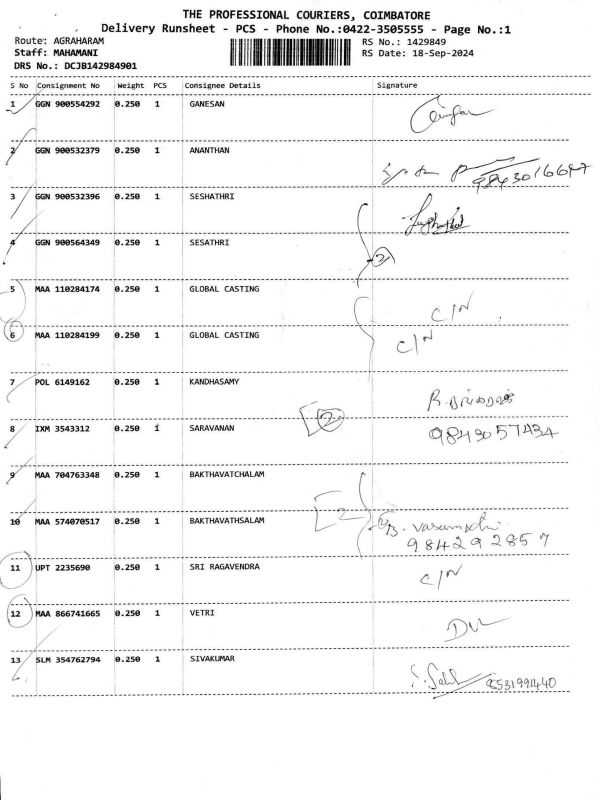 THE PROFESSIONAL COURIERS, COIMBATORE
Delivery Runsheet - PCS - Phone No.:0422-3505555 - Page No.:1
Route: AGRAHARAM RS No.: 1429849
Staff: MAHAMANI RS Date: 18-Sep-2024
DRS No.: DCJB142984901
S No Consignment No Weight PCS Consignee Details Signature
1 GGN 900554292 0.250 1 GANESAN
2 GGN 900532379 0.250 1 ANANTHAN
9843016647
3 GGN 900532396 0.250 1 SESHATHRI
4 GGN 900564349 0.250 1 SESATHRI
2
5 MAA 110284174 0.250 1 GLOBAL CASTING C/N
6 MAA 110284199 0.250 1 GLOBAL CASTING C/N
7 POL 6149162 0.250 1 KANDHASAMY
2
8 IXM 3543312 0.250 1 SARAVANAN 9843057434
9 MAA 704763348 0.250 1 BAKTHAVATCHALAM
2
10 MAA 574070517 0.250 1 BAKTHAVATHSALAM
984292857
11 UPT 2235690 0.250 1 SRI RAGAVENDRA C/N
12 MAA 866741665 0.250 1 VETRI
13 SLM 354762794 0.250 1 SIVAKUMAR
9531991440